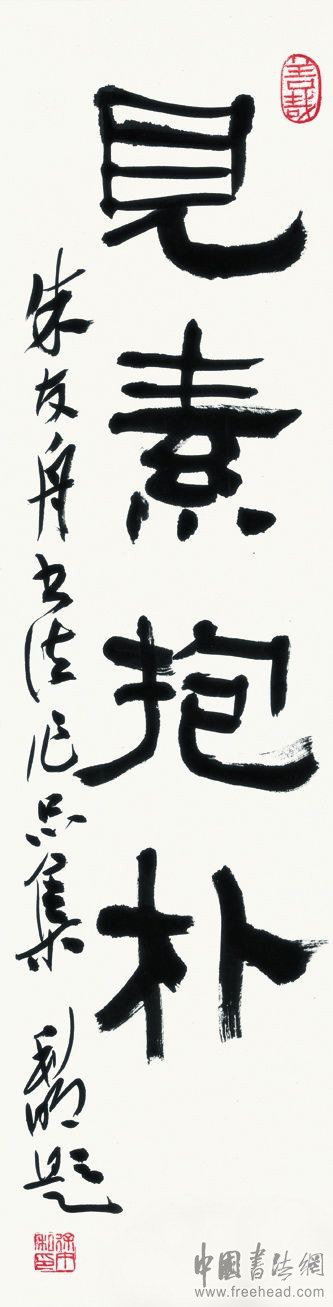 善哉
見素抱朴
朱友舟书法作品集 利明題
徐利明印
中國書法網
www.freehead.com